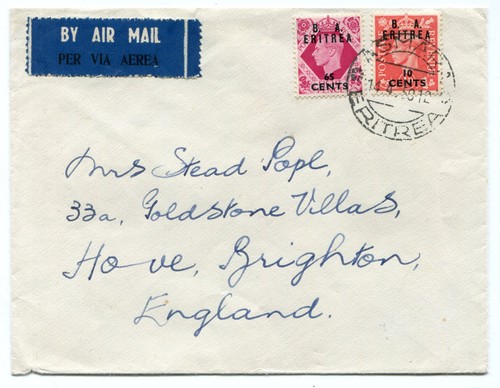 BY AIR MAIL
PER VIA AEREA
B. A.
ERITREA
65
CENTS
B. A.
ERITREA
10
CENTS
ERITREA
Mrs Stead Popl,
33a, Goldstone Villas,
Hove, Brighton,
England.